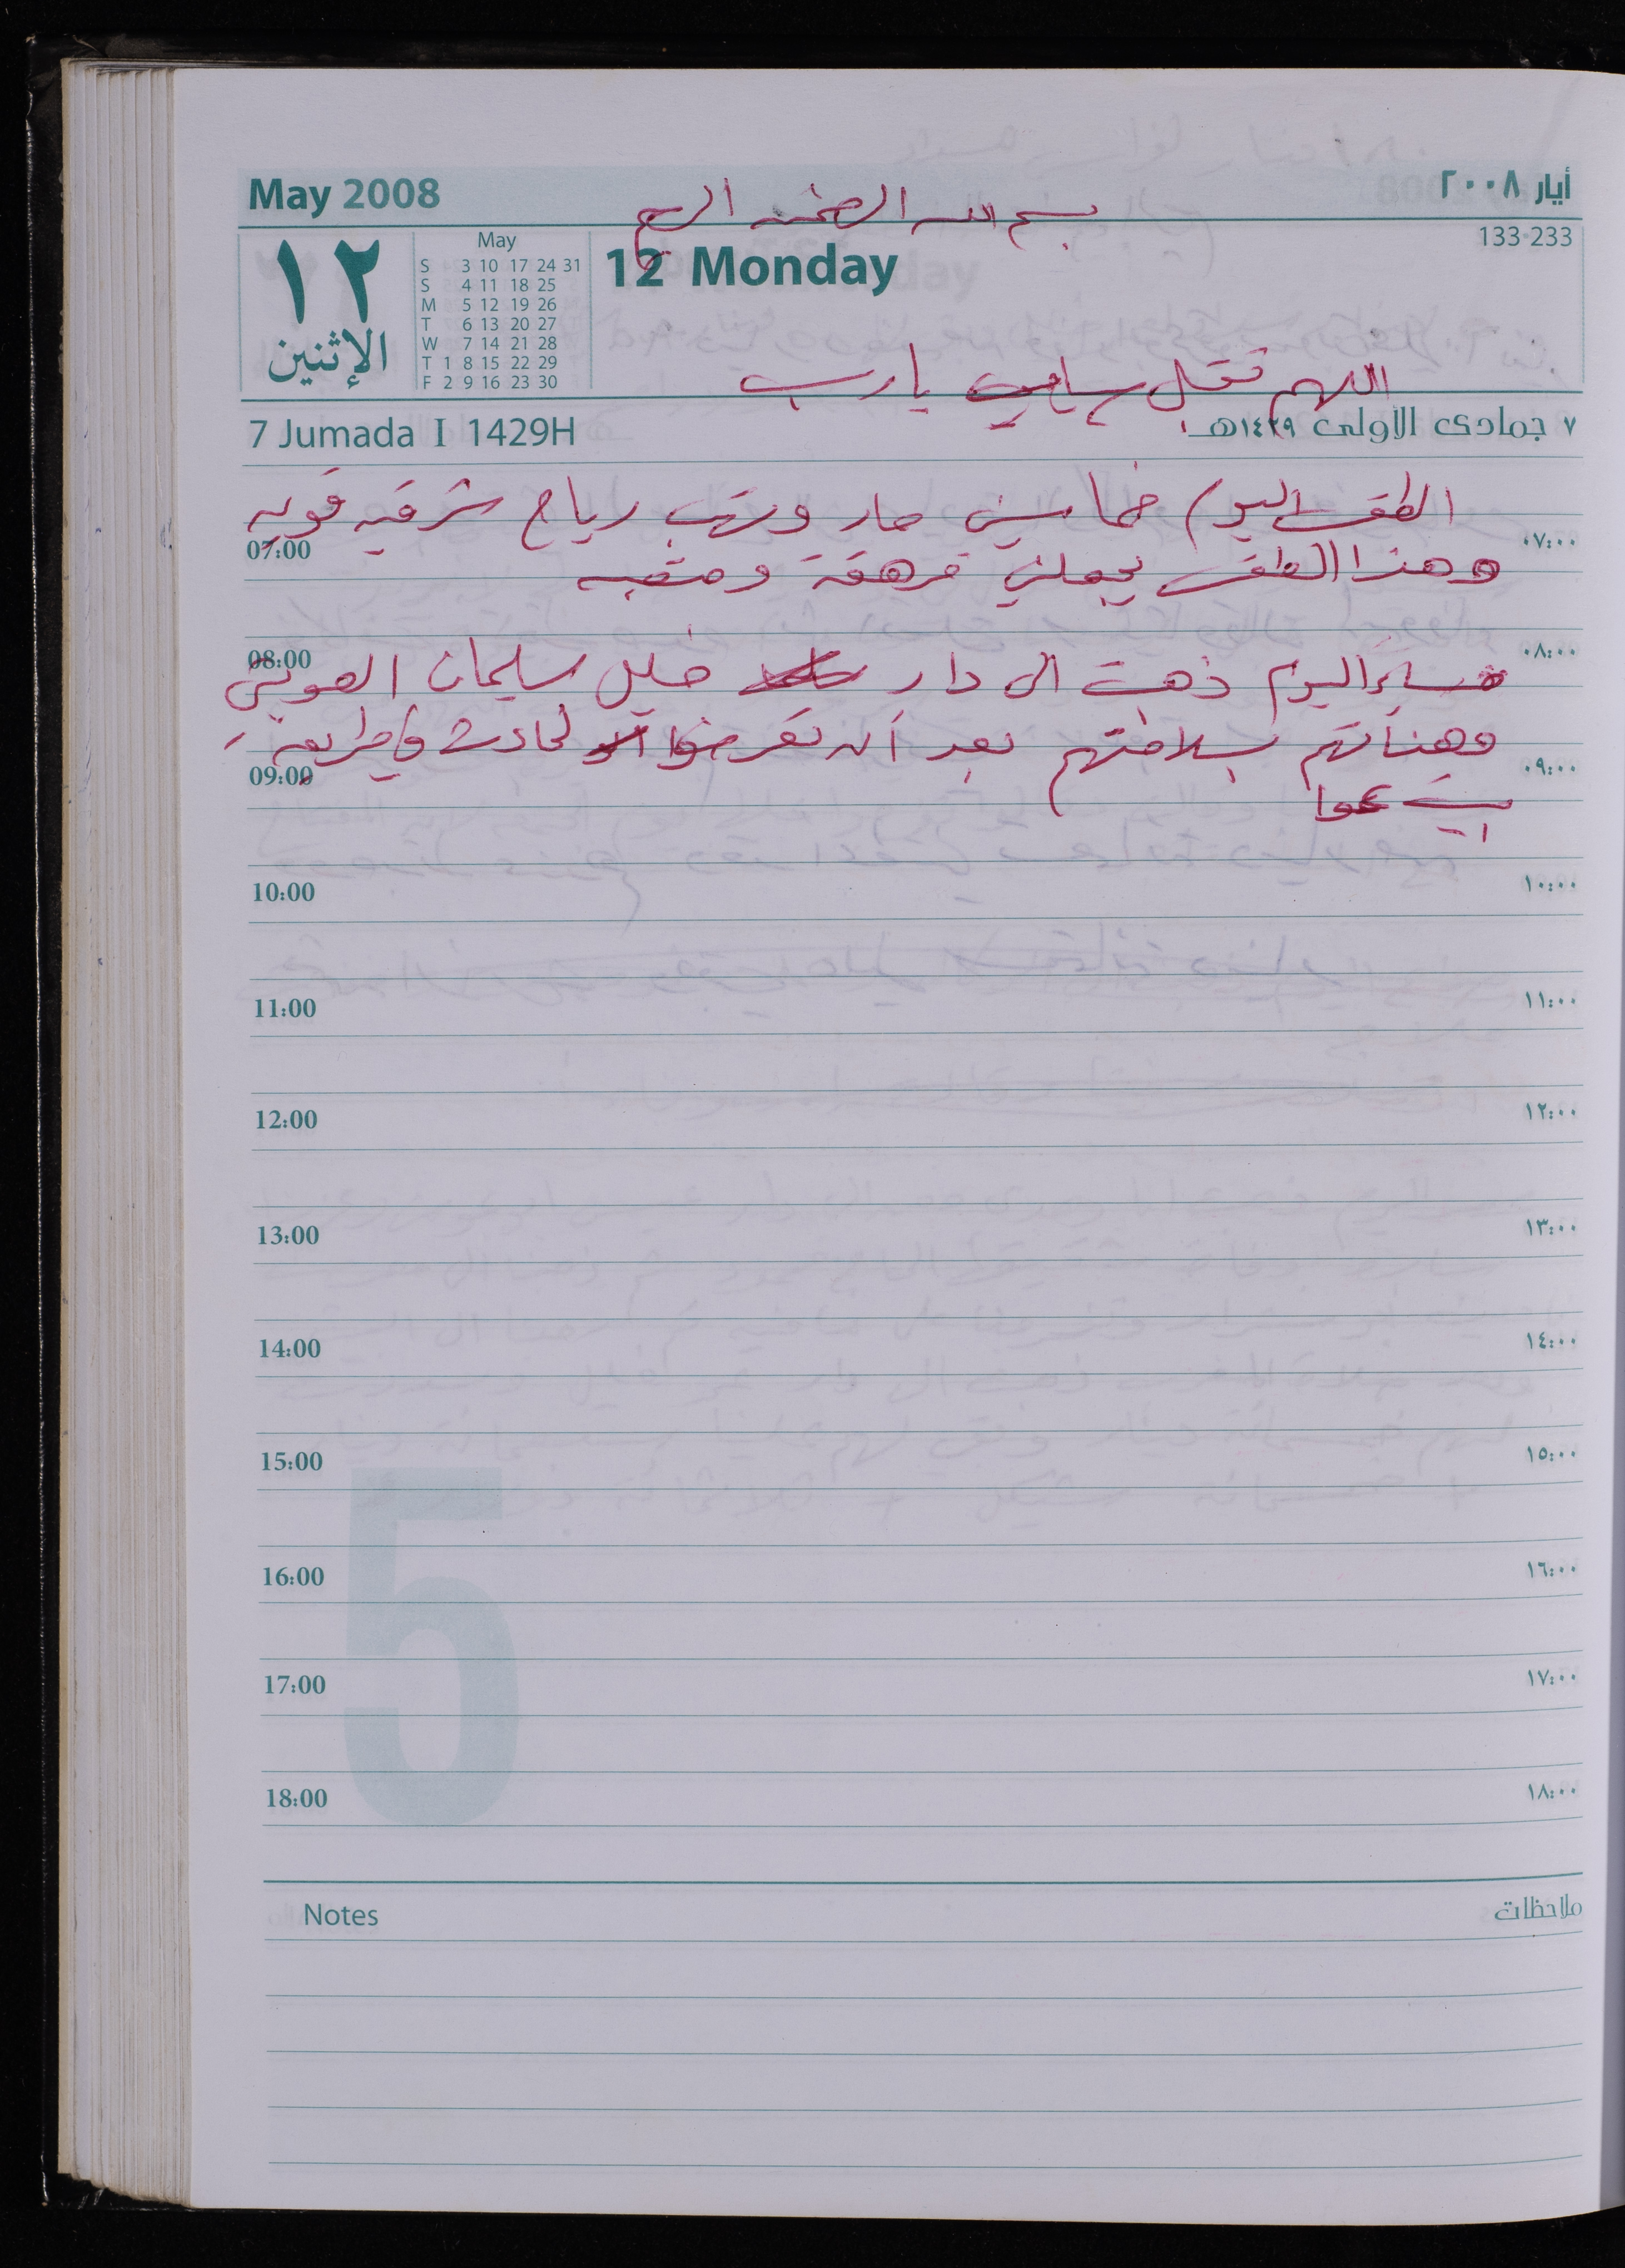 May 2008
أيار ٢٠٠٨
بسم الله الرحمن الرحيم
133-233
١٢
الإثنين
May
S 3 10 17 24 31
S 4 11 18 25
M 5 12 19 26
T 6 13 20 27
W 7 14 21 28
T 1 8 15 22 29
F 2 9 16 23 30
12 Monday
اللهم تقبل يا رب
7 Jumada I 1429H
٧ جمادى الأولى ١٤٢٩هـ
الطقس اليوم خماسيني حار وتهب رياح شرقيه قويه
07:00 ٠٧:٠٠
وهذا الطقس يجعلني مرهقة ومتعبه
08:00 ٠٨:٠٠
مساء اليوم ذهبت الى دار خليل سليمان
وهنأتهم بسلامتهم بعد أن تعرضوا لحادث
09:00 ٠٩:٠٠
10:00 ١٠:٠٠
11:00 ١١:٠٠
12:00 ١٢:٠٠
13:00 ١٣:٠٠
14:00 ١٤:٠٠
15:00 ١٥:٠٠
16:00 ١٦:٠٠
17:00 ١٧:٠٠
18:00 ١٨:٠٠
5
Notes ملاحظات